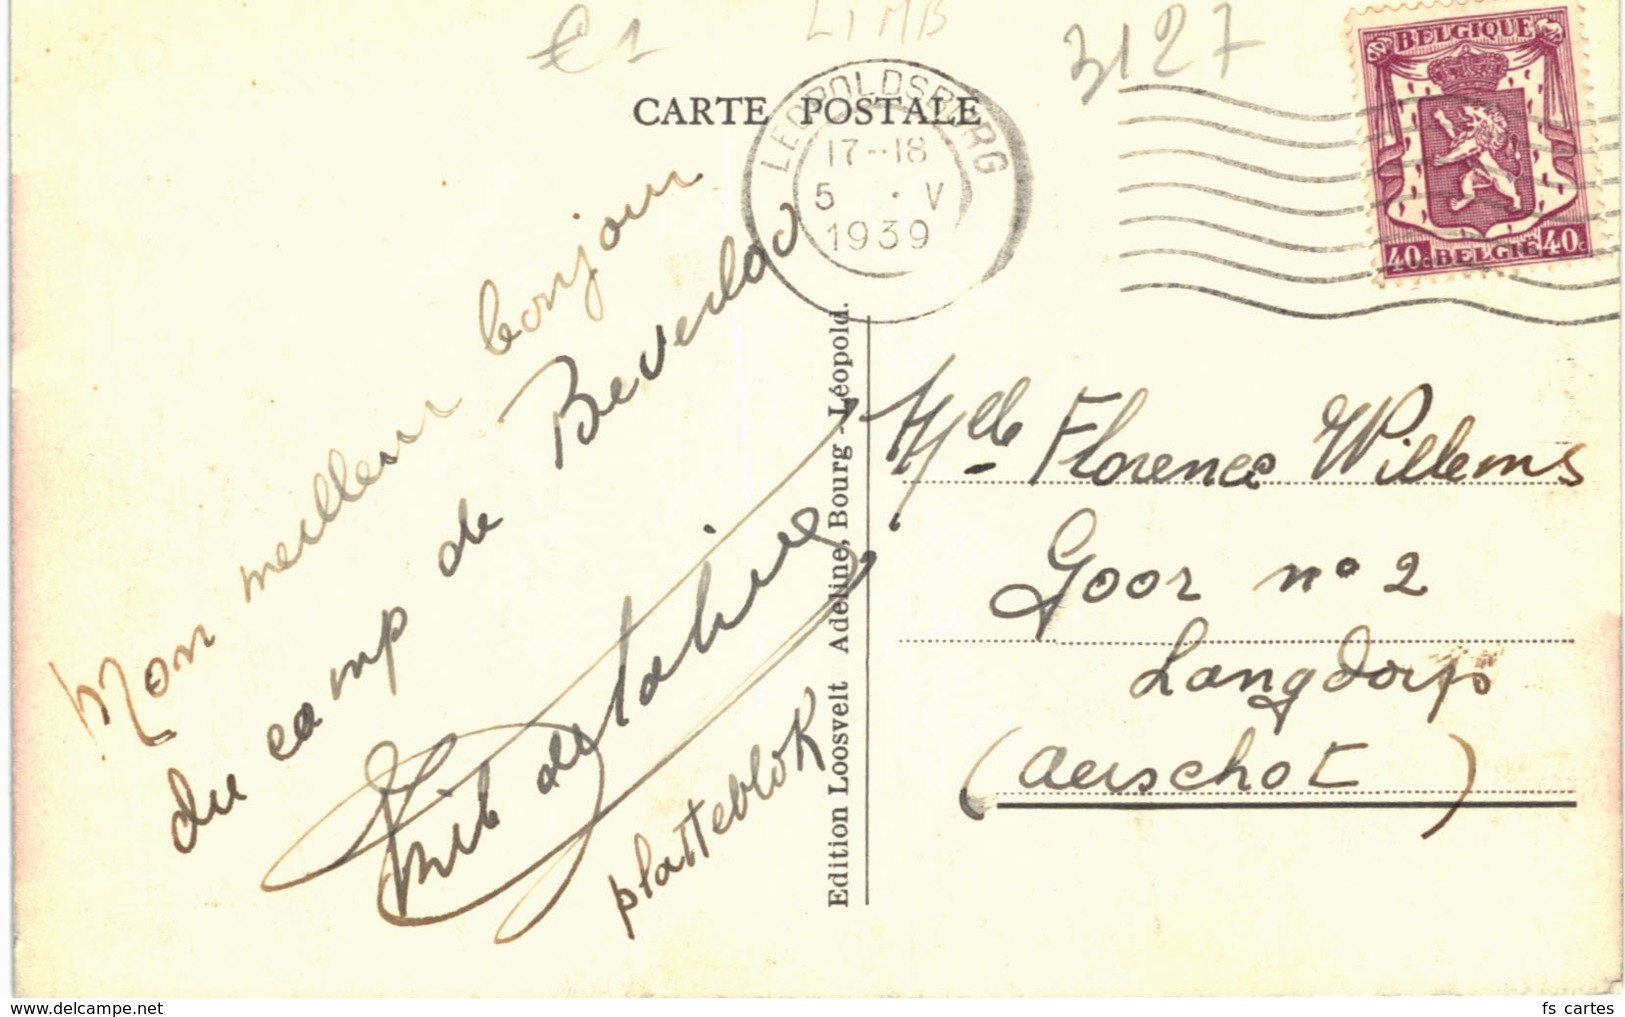 €1
LIMB
3127
CARTE POSTALE
LEOPOLDSBURG
17-18
5 · V
1939
BELGIQUE
40c BELGIË 40c
Mon meilleur bonjour
du camp de Beverloo
platteblok
Edition Loosvelt Adeline, Bourg-Léopold.
Mlle Florence Willems
Goor n° 2
Langdorp
(Aerschot)
www.delcampe.net
fs cartes